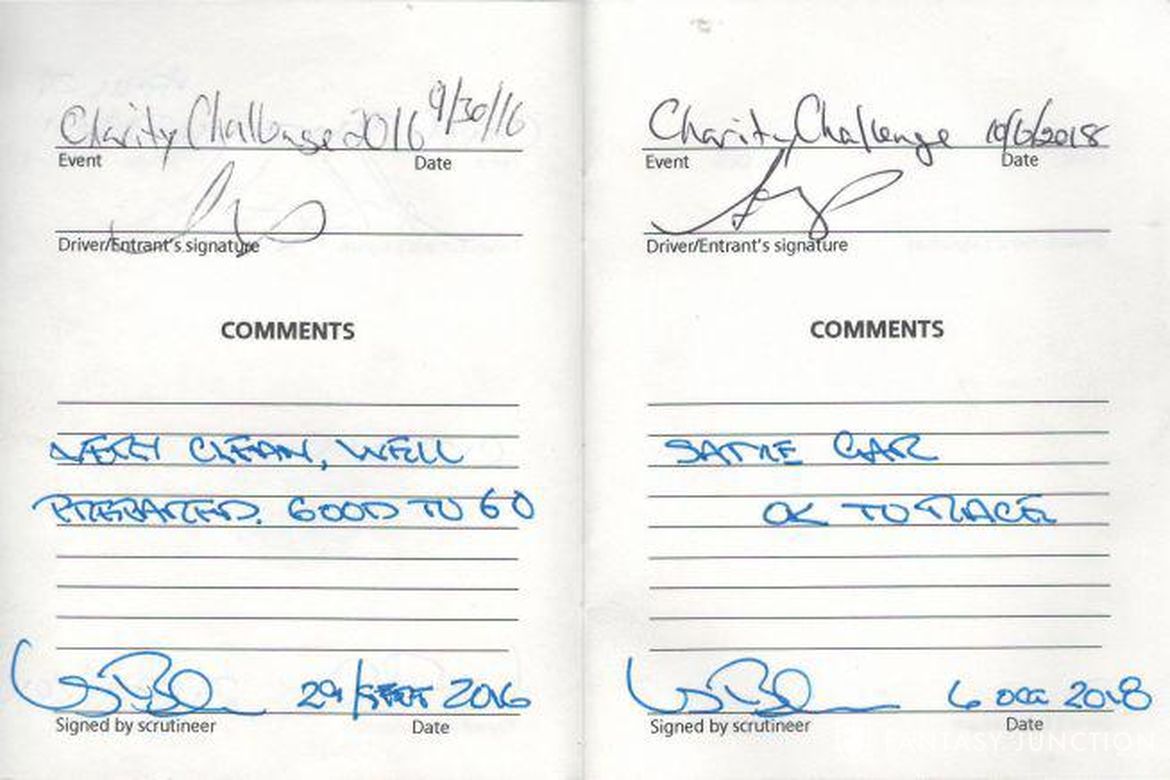 Charity Challenge 2016 9/30/16
Event Date
Driver/Entrant's signature
COMMENTS
VERY CLEAN, WELL
PREPARED. GOOD TO GO
29/SEPT 2016
Signed by scrutineer Date
Charity Challenge 10/6/2018
Event Date
Driver/Entrant's signature
COMMENTS
SAME CAR
OK TO RACE
6 Oct 2018
Signed by scrutineer Date
FANTASY JUNCTION